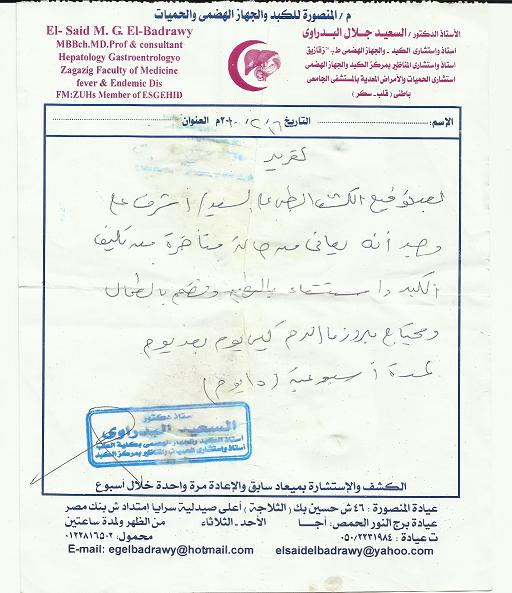 م / المنصورة للكبد والجهاز الهضمى والحميات
El- Said M. G. El-Badrawy
MBBch.MD.Prof & consultant
Hepatology Gastroentrologyo
Zagazig Faculty of Medicine
fever & Endemic Dis
FM:ZUHs Member of ESGEHID
الأستاذ الدكتور / السعيد جلال البدراوى
استاذ واستشارى الكبد - والجهاز الهضمى طب ؛ زقازيق
استاذ واستشارى المناظير بمركز الكبد والجهاز الهضمى
استشارى الحميات والأمراض المعدية بالمستشفى الجامعى
باطنى (قلب - سكر)
الإسم: التاريخ ٢/١٦/٢٠١٠م العنوان
تقرير
بعد توقيع الكشف الطبى على السيد / أشرف على
وجد أنه يعانى من حالة متأخرة من تليف
الكبد واستسقاء بالبطن وتضخم بالطحال
ويحتاج بلازما الدم كيس يوم بعد يوم
لمدة أسبوعية (١٥ يوم)
استاذ دكتور
السعيد البدراوى
استاذ الكبد والجهاز الهضمى بكلية الطب
استاذ واستشارى الحميات والمناظير بمركز الكبد
الكشف والإستشارة بميعاد سابق والإعادة مرة واحدة خلال أسبوع
عيادة المنصورة : ٤٦ ش حسين بك (الثلاجة) أعلى صيدلية سرايا امتداد ش بنك مصر
عيادة برج النور الحمص: أجا الأحد - الثلاثاء من الظهر ولمدة ساعتين
ت عيادة : ٠٥٠/٢٢٣١٩٨٤ محمول: ٠١٢٢٨١٦٥٠٢
E-mail: egelbadrawy@hotmail.com elsaidelbadrawy@yahoo.com